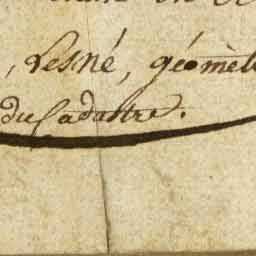 , Lesné, géomèt
du Cadastre.